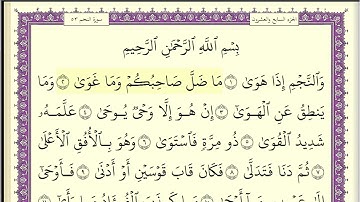 الجزء السابع والعشرون
سورة النجم ٥٣
بِسْمِ اللَّهِ الرَّحْمَٰنِ الرَّحِيمِ
وَالنَّجْمِ إِذَا هَوَىٰ ١ مَا ضَلَّ صَاحِبُكُمْ وَمَا غَوَىٰ ٢ وَمَا
يَنطِقُ عَنِ الْهَوَىٰ ٣ إِنْ هُوَ إِلَّا وَحْيٌ يُوحَىٰ ٤ عَلَّمَهُ
شَدِيدُ الْقُوَىٰ ٥ ذُو مِرَّةٍ فَاسْتَوَىٰ ٦ وَهُوَ بِالْأُفُقِ الْأَعْلَىٰ
٧ ثُمَّ دَنَا فَتَدَلَّىٰ ٨ فَكَانَ قَابَ قَوْسَيْنِ أَوْ أَدْنَىٰ ٩ فَأَوْحَىٰ